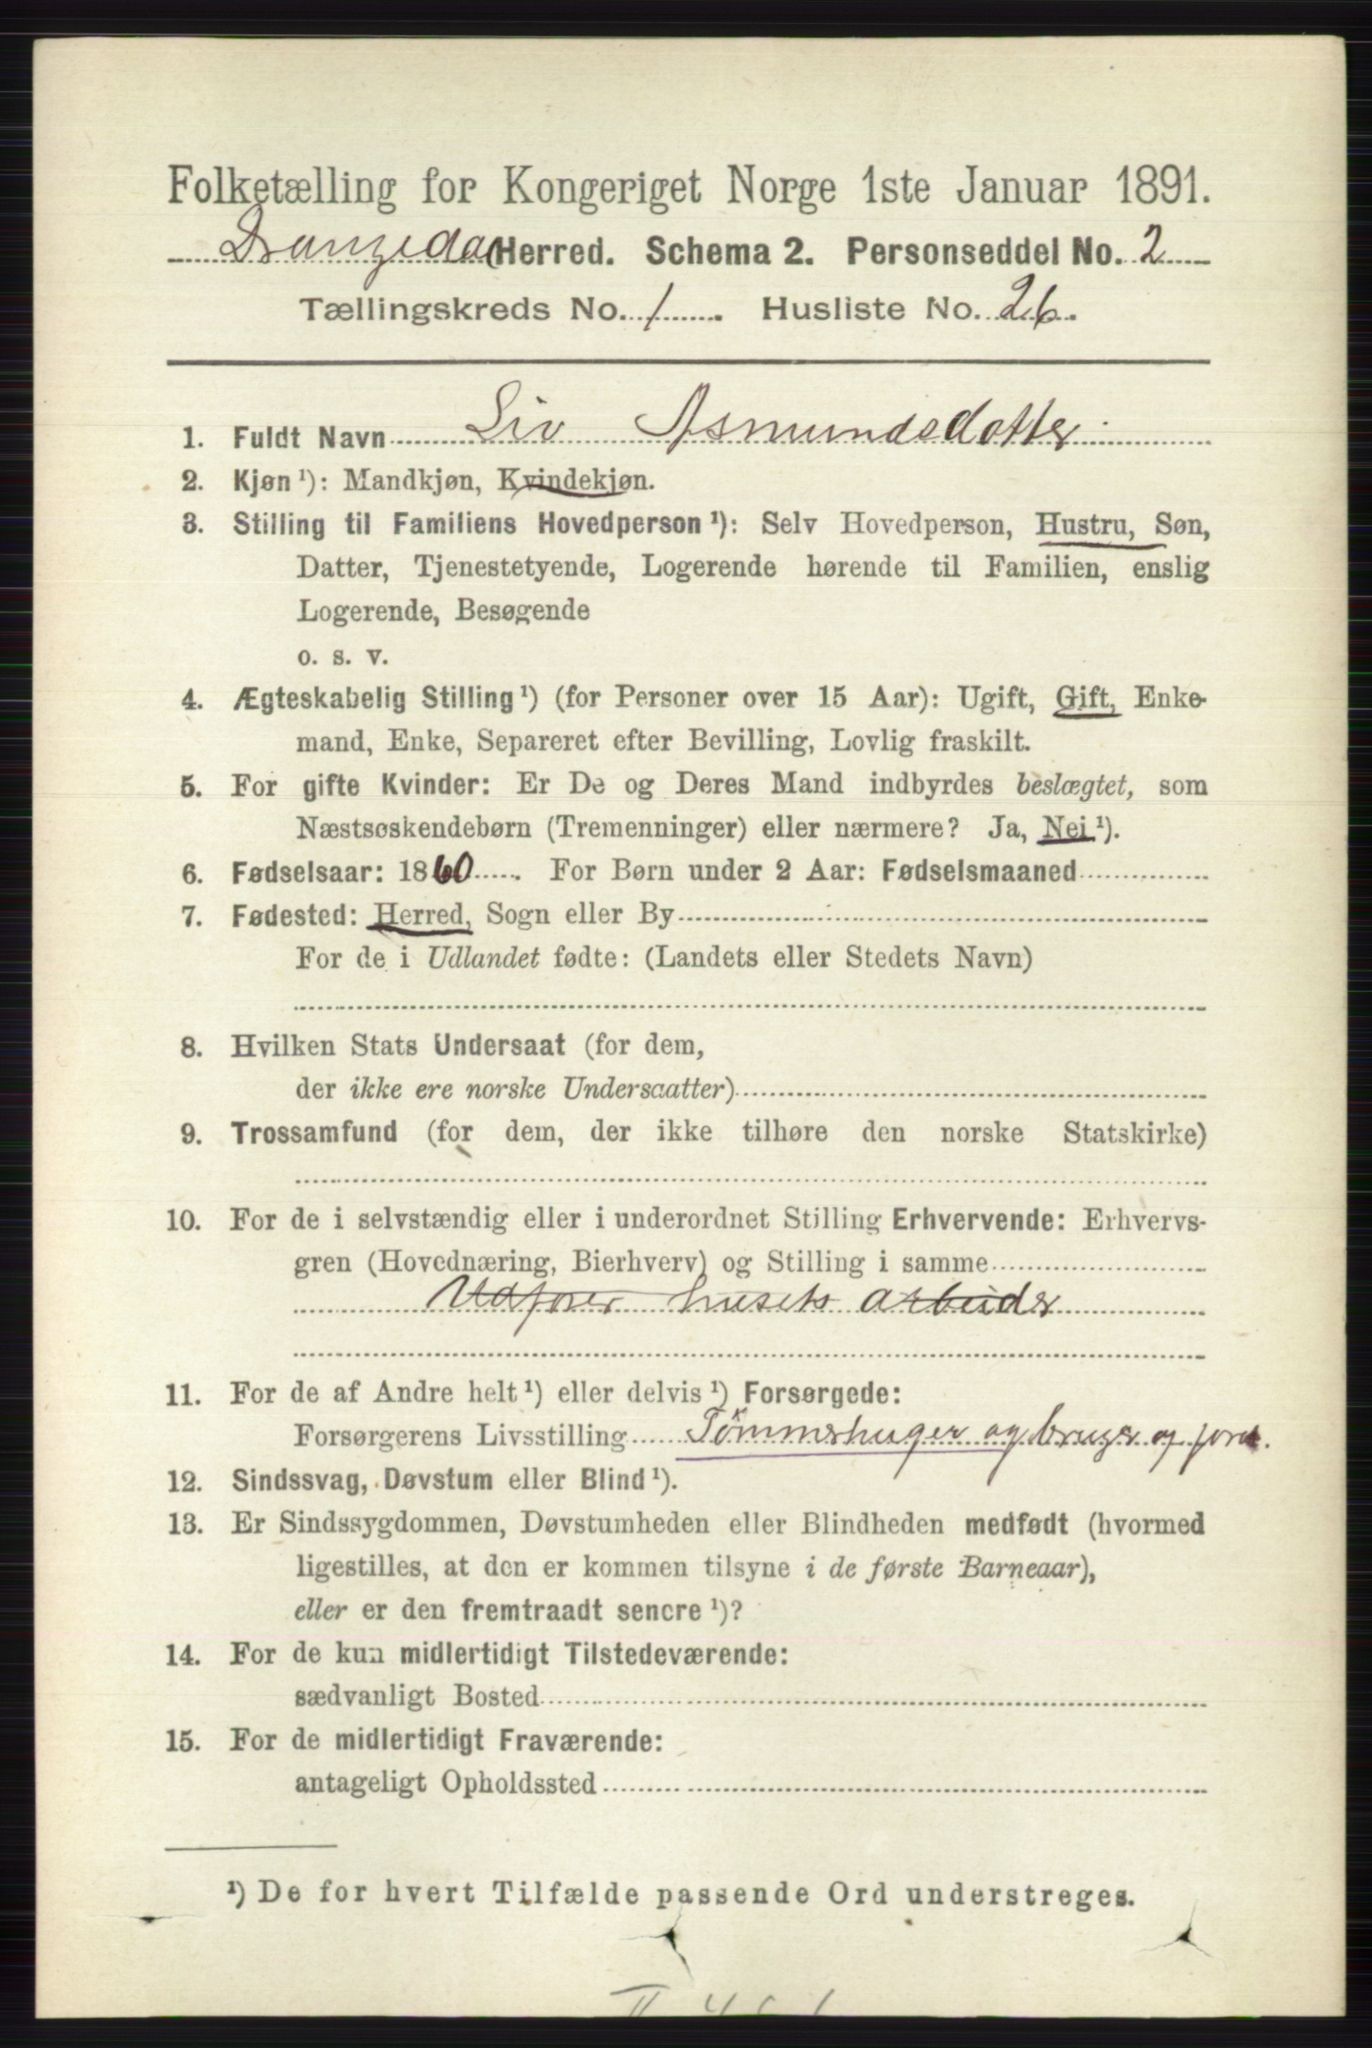 Folketælling for Kongeriget Norge 1ste Januar 1891.
Drangedal Herred. Schema 2. Personseddel No. 2
Tællingskreds No. 1. Husliste No. 26.
1. Fuldt Navn Liv Asmundsdotter
2. Kjøn ¹): Mandkjøn, Kvindekjøn.
3. Stilling til Familiens Hovedperson ¹): Selv Hovedperson, Hustru, Søn,
Datter, Tjenestetyende, Logerende hørende til Familien, enslig
Logerende, Besøgende
o. s. v.
4. Ægteskabelig Stilling ¹) (for Personer over 15 Aar): Ugift, Gift, Enke-
mand, Enke, Separeret efter Bevilling, Lovlig fraskilt.
5. For gifte Kvinder: Er De og Deres Mand indbyrdes beslægtet, som
Næstsøskendebørn (Tremenninger) eller nærmere? Ja, Nei ¹).
6. Fødselsaar: 1860. For Børn under 2 Aar: Fødselsmaaned
7. Fødested: Herred, Sogn eller By
For de i Udlandet fødte: (Landets eller Stedets Navn)
8. Hvilken Stats Undersaat (for dem,
der ikke ere norske Undersaatter)
9. Trossamfund (for dem, der ikke tilhøre den norske Statskirke)
10. For de i selvstændig eller i underordnet Stilling Erhvervende: Erhvervs-
gren (Hovednæring, Bierhverv) og Stilling i samme
Udfører husets arbeider
11. For de af Andre helt ¹) eller delvis ¹) Forsørgede:
Forsørgerens Livsstilling Tømmerhuger og bruger og jord.
12. Sindssvag, Døvstum eller Blind ¹).
13. Er Sindssygdommen, Døvstumheden eller Blindheden medfødt (hvormed
ligestilles, at den er kommen tilsyne i de første Barneaar),
eller er den fremtraadt senere ¹)?
14. For de kun midlertidigt Tilstedeværende:
sædvanligt Bosted
15. For de midlertidigt Fraværende:
antageligt Opholdssted
¹) De for hvert Tilfælde passende Ord understreges.